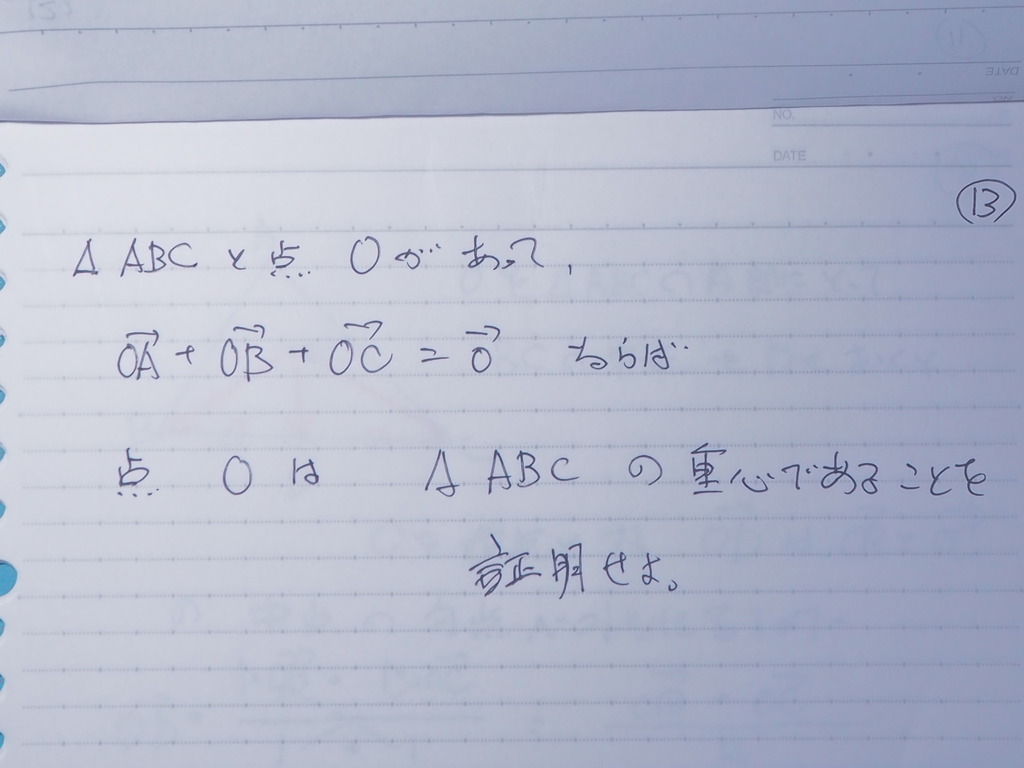 NO.
DATE
⑬
△ABCと点Oがあって,
OA→ + OB→ + OC→ = 0→ ならば
点Oは △ABCの重心であることを
証明せよ。